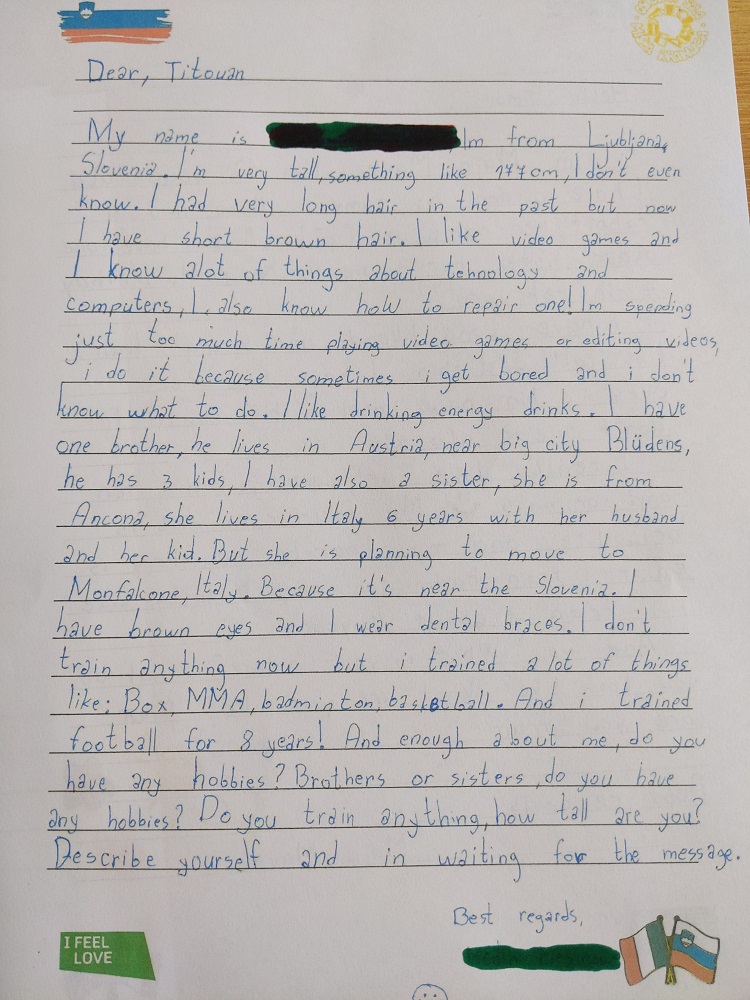 Dear, Titouan
My name is Im from Ljubljana,
Slovenia. I'm very tall, something like 177cm, I don't even
know. I had very long hair in the past but now
I have short brown hair. I like video games and
I know alot of things about tehnology and
computers, I also know how to repair one! Im spending
just too much time playing video games or editing videos,
i do it because sometimes i get bored and i don't
know what to do. I like drinking energy drinks. I have
one brother, he lives in Austria, near big city Blüdens,
he has 3 kids, I have also a sister, she is from
Ancona, she lives in Italy 6 years with her husband
and her kid. But she is planning to move to
Monfalcone, Italy. Because it's near the Slovenia. I
have brown eyes and I wear dental braces. I don't
train anything now but i trained a lot of things
like: Box, MMA, badminton, basketball. And i trained
football for 8 years! And enough about me, do you
have any hobbies? Brothers or sisters, do you have
any hobbies? Do you train anything, how tall are you?
Describe yourself and in waiting for the message.
Best regards,
I FEEL
LOVE